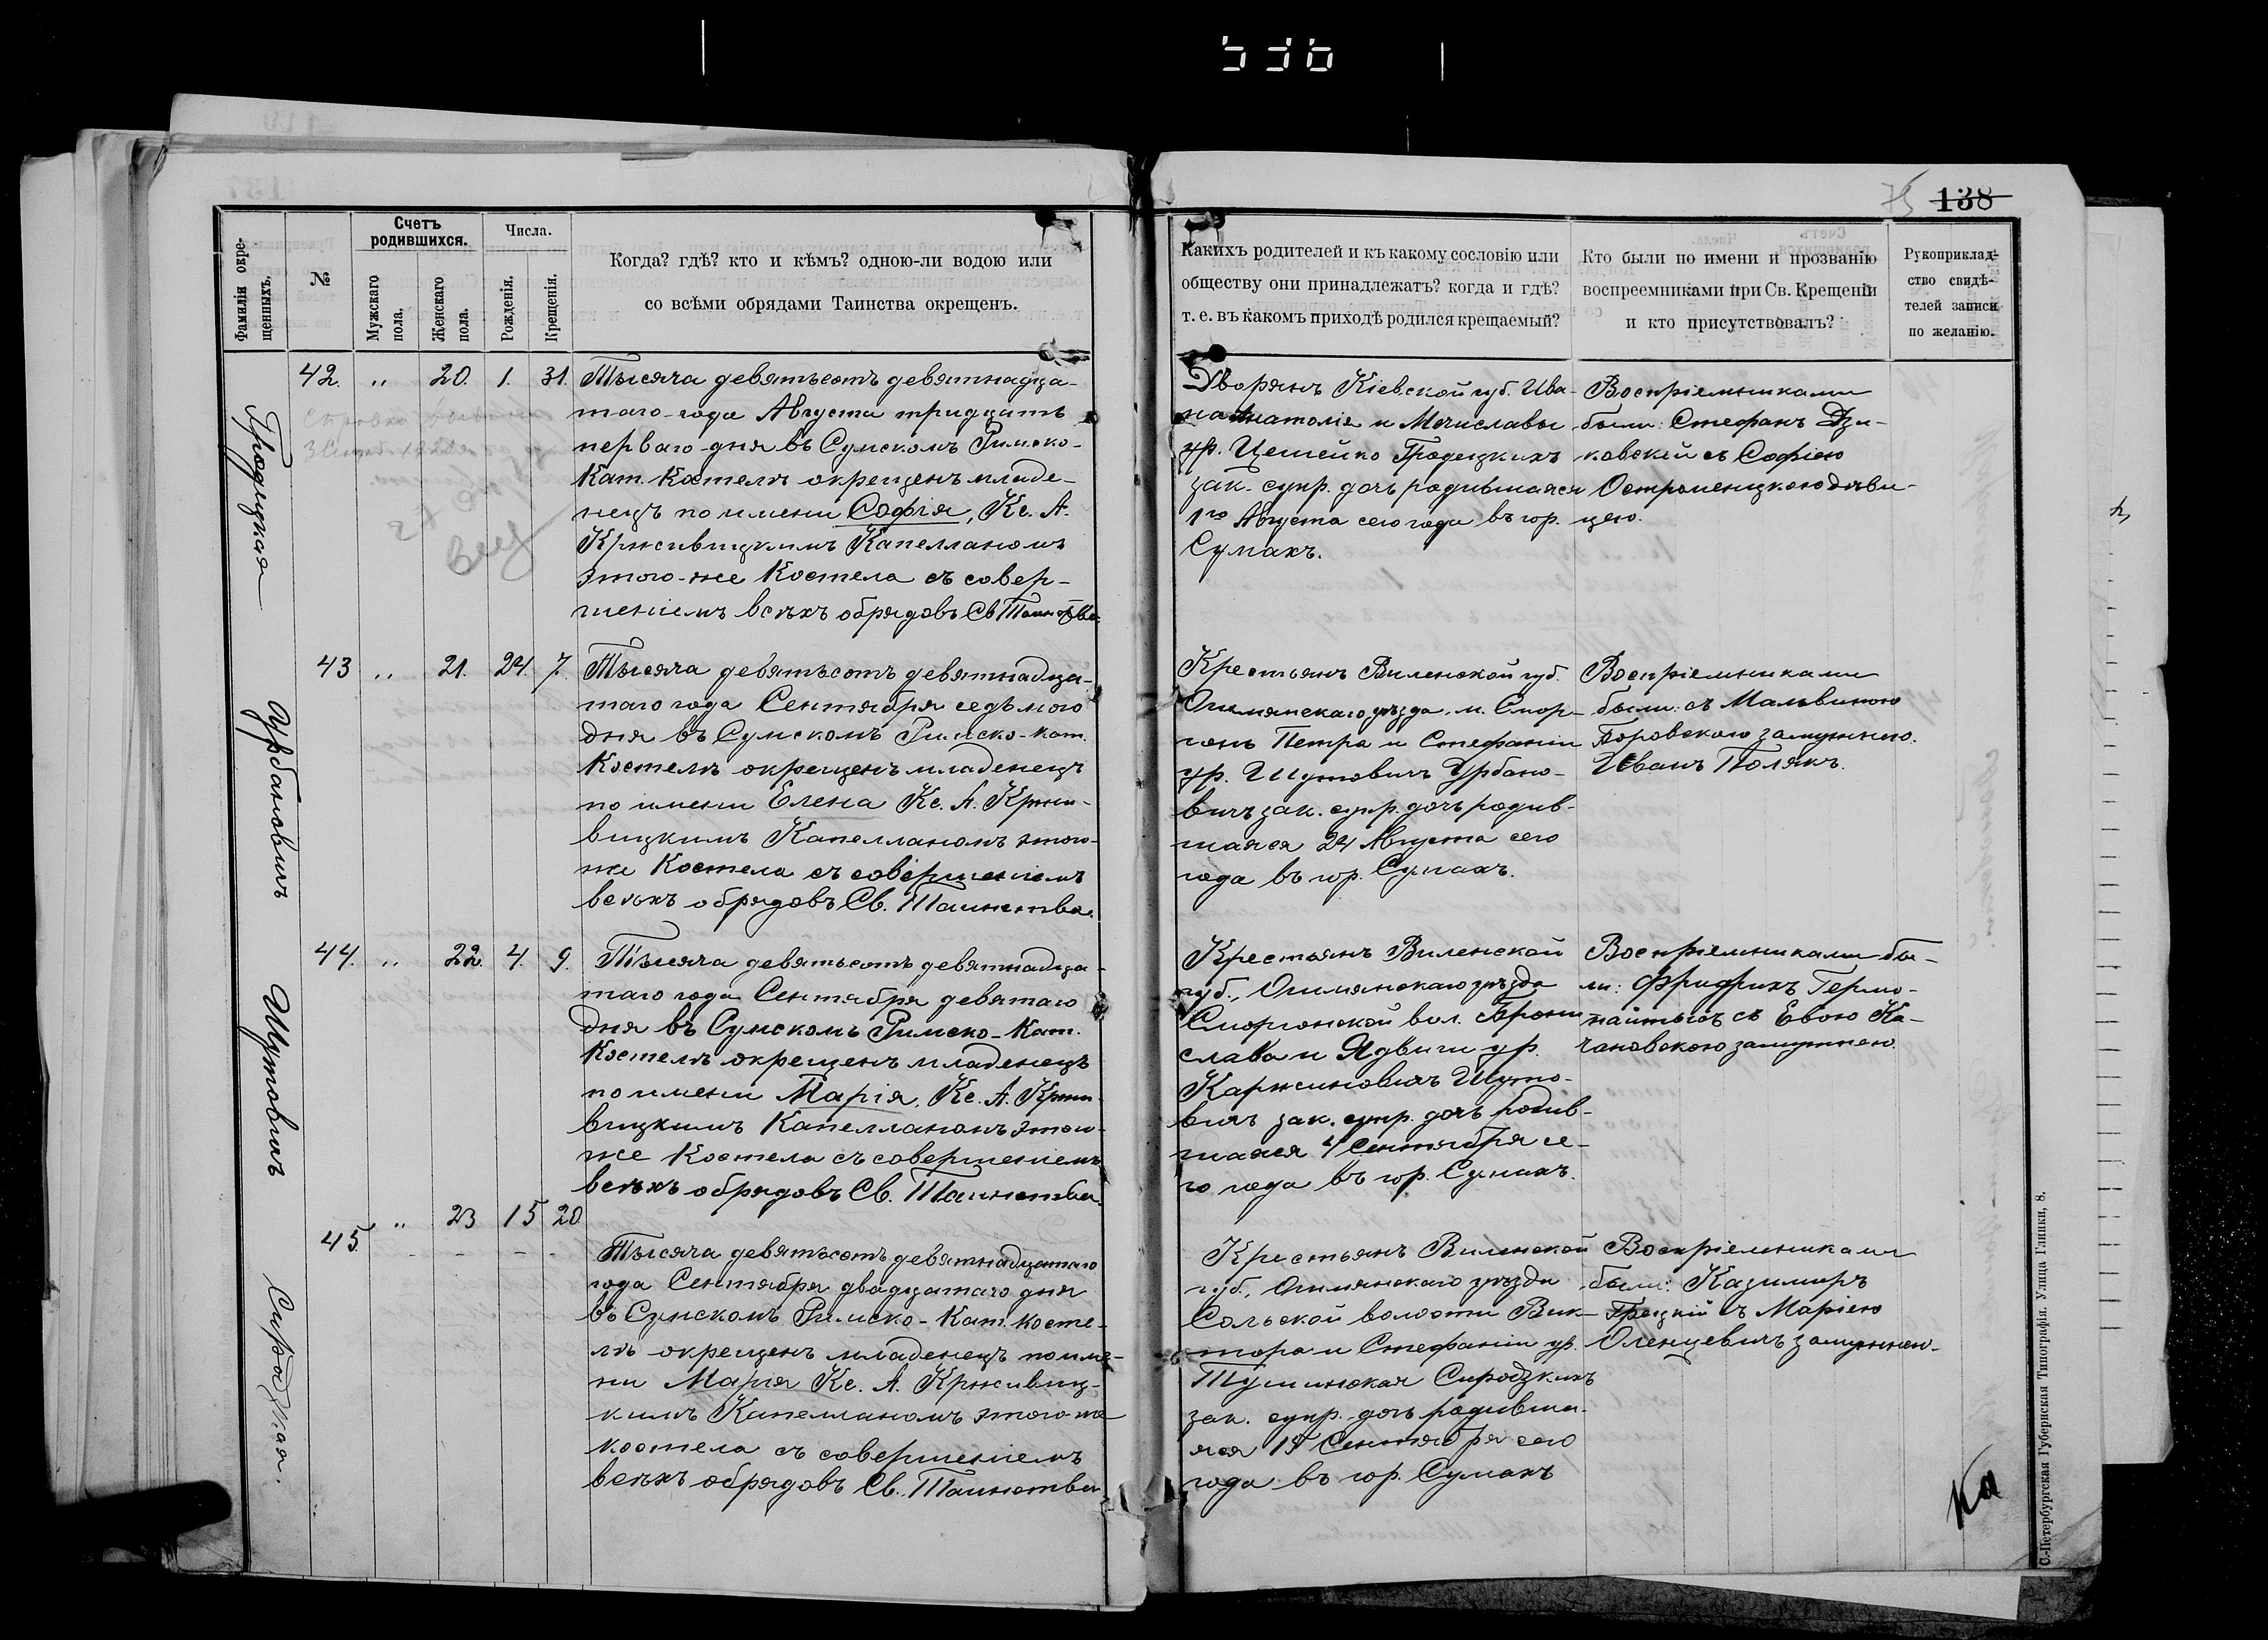 536
75 138
Фамиліи окре-
щенныхъ.
№
Счетъ
родившихся.
Мужскаго
пола.
Женскаго
пола.
Числа.
Рожденія.
Крещенія.
Когда? гдѣ? кто и кѣмъ? одною-ли водою или
со всѣми обрядами Таинства окрещенъ.
Какихъ родителей и къ какому сословію или
обществу они принадлежатъ? когда и гдѣ?
т. е. въ какомъ приходѣ родился крещаемый?
Кто были по имени и прозванію
воспреемниками при Св. Крещеніи
и кто присутствовалъ?
Рукоприклад-
ство свидѣ-
телей записи
по желанію.
Гродецкая
42. " 20. 1. 31.
Тысяча девятьсотъ девятнадца-
таго года Августа тридцать
перваго дня въ Сумскомъ Римско-
Кат. Костелѣ окрещенъ младе-
нецъ по имени Софія, Кс. А.
Крживицкимъ Капелланомъ
этого-же Костела съ совер-
шеніемъ всѣхъ обрядовъ Св Таинства
Дворянъ Кіевской губ. Ива-
на Анатолія и Мечиславы
ур. Цешейко Гродецкихъ
зак. супр. дочь родившаяся
1го Августа сего года въ гор.
Сумахъ.
Воспріемниками
были: Стефанъ Дзи-
ковскій съ Софіею
Остроменцкою дѣви-
цею.
Урбановичъ
43 " 21. 24. 7.
Тысяча девятьсотъ девятнадца-
таго года Сентября седьмого
дня въ Сумскомъ Римско-кат.
Костелѣ окрещенъ младенецъ
по имени Елена Кс. А. Кржи-
вицкимъ Капелланомъ этого-
же Костела съ совершеніемъ
всѣхъ обрядовъ Св. Таинства.
Крестьянъ Виленской губ.
Ошмянскаго уѣзда м. Смор-
гонь Петра и Стефаніи
ур. Шутовичъ Урбано-
вичъ зак. супр. дочь родив-
шаяся 24 Августа сего
года въ гор. Сумахъ.
Воспріемниками
были: съ Мальвиною
Боровскою замужнею.
Иванъ Полякъ.
Шутовичъ
44. " 22. 4. 9.
Тысяча девятьсотъ девятнадца-
таго года Сентября девятаго
дня въ Сумскомъ Римско-Кат.
Костелѣ окрещенъ младенецъ
по имени Марія, Кс. А. Кржи-
вицкимъ Капелланомъ этого-
же Костела съ совершеніемъ
всѣхъ обрядовъ Св. Таинства.
Крестьянъ Виленской
губ., Ошмянскаго уѣзда
Сморгонской вол. Брони-
слава и Ядвиги ур.
Каржиновичъ Шуто-
вичъ зак. супр. дочь родив-
шаяся 4 Сентября се-
го года въ гор. Сумахъ.
Воспріемниками бы-
ли: Фридрихъ Гермо-
найтысъ съ Евою Ка-
чановскою замужнею.
Сиродзкая.
45. " 23 15 20
Тысяча девятьсотъ девятнадцатаго
года Сентября двадцатаго дня
въ Сумскомъ Римско-Кат. косте-
лѣ окрещенъ младенецъ по име-
ни Марія Кс. А. Крживиц-
кимъ Капелланомъ этого-же
костела съ совершеніемъ
всѣхъ обрядовъ Св. Таинства
Крестьянъ Виленской
губ., Ошмянскаго уѣзда
Сольской волости Вик-
тора и Стефаніи ур.
Тушинская Сиродзкихъ
зак. супр. дочь родивша-
яся 15 Сентября сего
года въ гор. Сумахъ
Воспріемниками
были: Казимиръ
Грецкій съ Маріею
Оленцевичъ замужнею.
Ка
С.-Петербургская Губернская Типографія. Улица Глинки, 8.